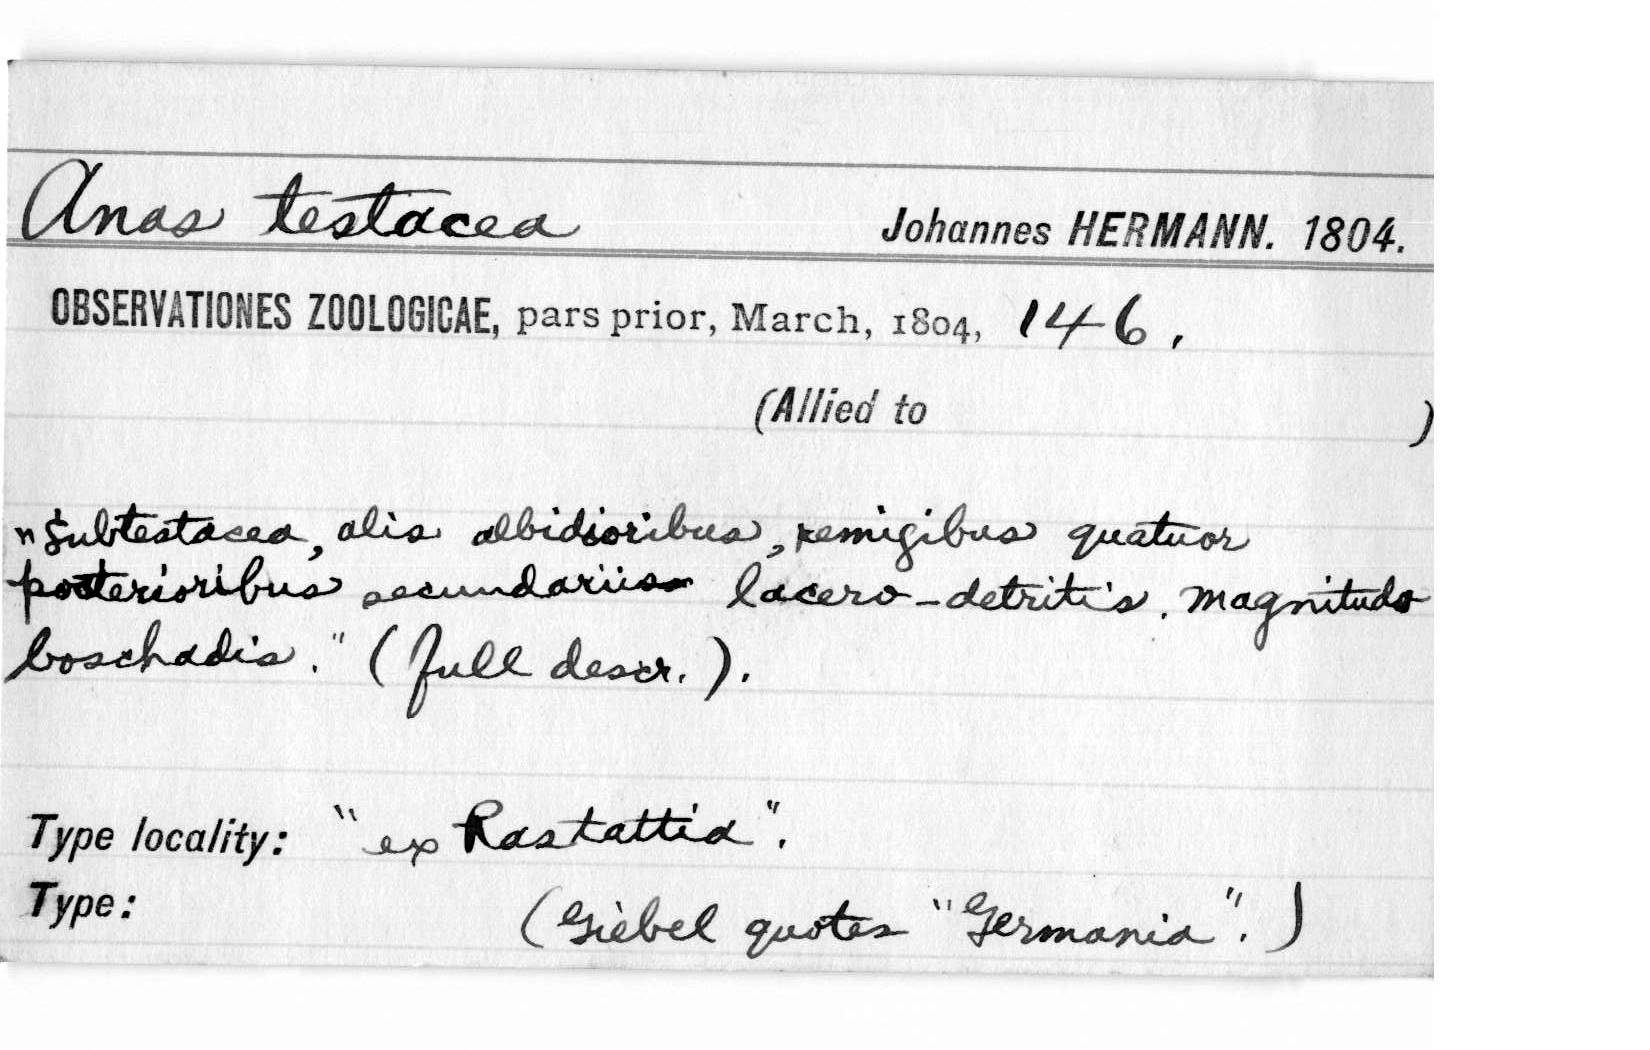 Anas testacea Johannes HERMANN. 1804.
OBSERVATIONES ZOOLOGICAE, pars prior, March, 1804, 146.
(Allied to )
"Subtestacea, alis albidioribus, remigibus quatuor
posterioribus secundariis lacero-detritis. Magnitudo
boschadis." (full descr.).
Type locality: "ex Rastattia".
Type: (Giebel quotes "Germania".)